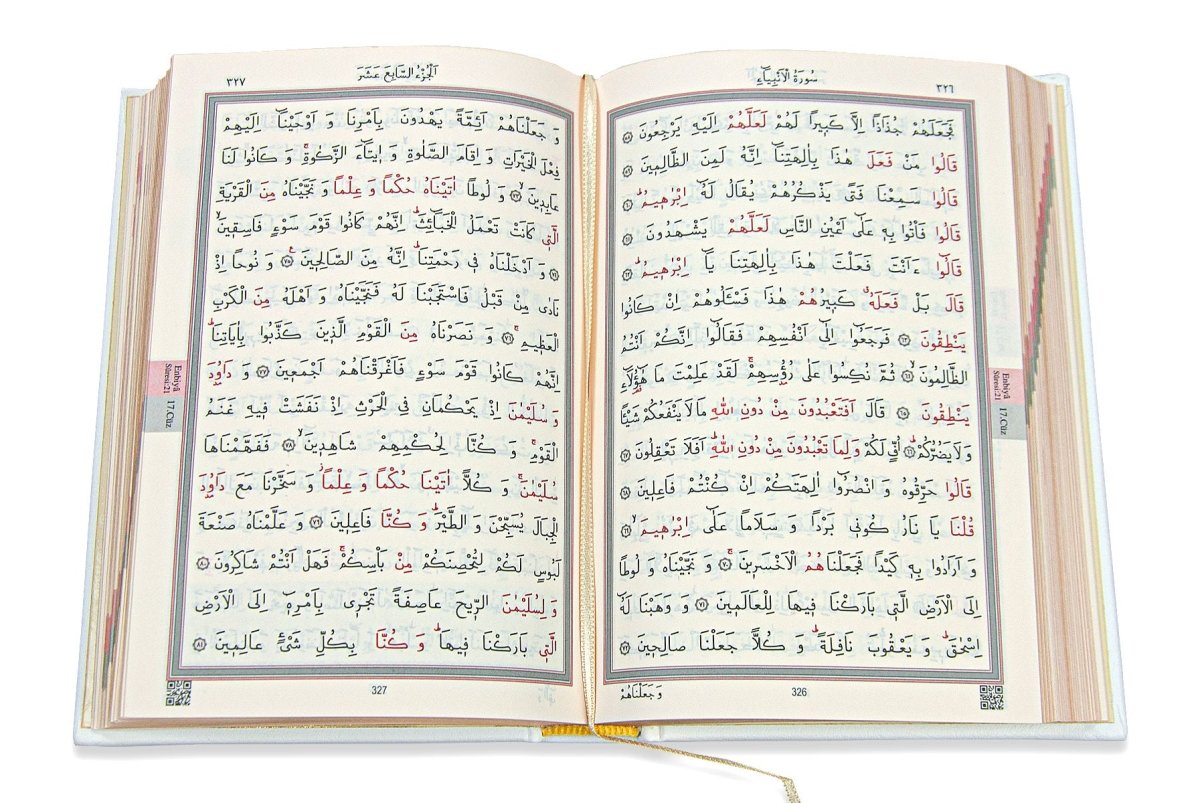 سُورَةُ الْاَنْبِيَاءِ
٣٢٦
فَجَعَلَهُمْ جُذَاذًا اِلَّا كَبِيرًا لَهُمْ لَعَلَّهُمْ اِلَيْهِ يَرْجِعُونَ ﴿٥٨﴾
قَالُوا مَنْ فَعَلَ هٰذَا بِاٰلِهَتِنَٓا اِنَّهُ لَمِنَ الظَّالِمِينَ ﴿٥٩﴾
قَالُوا سَمِعْنَا فَتًى يَذْكُرُهُمْ يُقَالُ لَهُٓ اِبْرٰهِيمُۜ ﴿٦٠﴾
قَالُوا فَأْتُوا بِهِ عَلٰٓى اَعْيُنِ النَّاسِ لَعَلَّهُمْ يَشْهَدُونَ ﴿٦١﴾
قَالُٓوا ءَاَنْتَ فَعَلْتَ هٰذَا بِاٰلِهَتِنَا يَٓا اِبْرٰهِيمُۜ ﴿٦٢﴾
قَالَ بَلْ فَعَلَهُۗ كَبِيرُهُمْ هٰذَا فَسْـَٔلُوهُمْ اِنْ كَانُوا
يَنْطِقُونَ ﴿٦٣﴾ فَرَجَعُٓوا اِلٰٓى اَنْفُسِهِمْ فَقَالُٓوا اِنَّكُمْ اَنْتُمُ
الظَّالِمُونَۙ ﴿٦٤﴾ ثُمَّ نُكِسُوا عَلٰى رُؤُ۫سِهِمْۚ لَقَدْ عَلِمْتَ مَا هٰٓؤُ۬لَٓاءِ
يَنْطِقُونَ ﴿٦٥﴾ قَالَ اَفَتَعْبُدُونَ مِنْ دُونِ اللّٰهِ مَا لَا يَنْفَعُكُمْ شَيْـًٔا
وَلَا يَضُرُّكُمْۜ ﴿٦٦﴾ اُفٍّ لَكُمْ وَلِمَا تَعْبُدُونَ مِنْ دُونِ اللّٰهِۜ اَفَلَا تَعْقِلُونَ ﴿٦٧﴾
قَالُوا حَرِّقُوهُ وَ انْصُرُٓوا اٰلِهَتَكُمْ اِنْ كُنْتُمْ فَاعِلِينَ ﴿٦٨﴾
قُلْنَا يَا نَارُ كُونِي بَرْدًا وَ سَلَامًا عَلٰٓى اِبْرٰهِيمَۙ ﴿٦٩﴾
وَ اَرَادُوا بِهِ كَيْدًا فَجَعَلْنَاهُمُ الْاَخْسَرِينَۚ ﴿٧٠﴾ وَ نَجَّيْنَاهُ وَ لُوطًا
اِلَى الْاَرْضِ الَّتِي بَارَكْنَا فِيهَا لِلْعَالَمِينَ ﴿٧١﴾ وَ وَهَبْنَا لَهُٓ
اِسْحٰقَۜ وَ يَعْقُوبَ نَافِلَةًۜ وَ كُلًّا جَعَلْنَا صَالِحِينَ ﴿٧٢﴾
وَ جَعَلْنَاهُمْ
326
Enbiyâ
Sûresi:21
17.Cüz
اَلْجُزْءُ السَّابِعَ عَشَرَ
٣٢٧
وَ جَعَلْنَاهُمْ اَئِمَّةً يَهْدُونَ بِاَمْرِنَا وَ اَوْحَيْنَٓا اِلَيْهِمْ
فِعْلَ الْخَيْرَاتِ وَ اِقَامَ الصَّلٰوةِ وَ اِيتَٓاءَ الزَّكٰوةِۚ وَ كَانُوا لَنَا
عَابِدِينَۙ ﴿٧٣﴾ وَ لُوطًا اٰتَيْنَاهُ حُكْمًا وَ عِلْمًا وَ نَجَّيْنَاهُ مِنَ الْقَرْيَةِ
الَّتِي كَانَتْ تَعْمَلُ الْخَبَٓائِثَۜ اِنَّهُمْ كَانُوا قَوْمَ سَوْءٍ فَاسِقِينَۙ
﴿٧٤﴾ وَ اَدْخَلْنَاهُ فِي رَحْمَتِنَاۜ اِنَّهُ مِنَ الصَّالِحِينَ۟ ﴿٧٥﴾ وَ نُوحًا اِذْ
نَادٰى مِنْ قَبْلُ فَاسْتَجَبْنَا لَهُ فَنَجَّيْنَاهُ وَ اَهْلَهُ مِنَ الْكَرْبِ
الْعَظِيمِۚ ﴿٧٦﴾ وَ نَصَرْنَاهُ مِنَ الْقَوْمِ الَّذِينَ كَذَّبُوا بِاٰيَاتِنَاۜ
اِنَّهُمْ كَانُوا قَوْمَ سَوْءٍ فَاَغْرَقْنَاهُمْ اَجْمَعِينَ ﴿٧٧﴾ وَ دَاوُ۫دَ
وَ سُلَيْمٰنَ اِذْ يَحْكُمَانِ فِي الْحَرْثِ اِذْ نَفَشَتْ فِيهِ غَنَمُ
الْقَوْمِۚ وَ كُنَّا لِحُكْمِهِمْ شَاهِدِينَۙ ﴿٧٨﴾ فَفَهَّمْنَاهَا
سُلَيْمٰنَۚ وَ كُلًّا اٰتَيْنَا حُكْمًا وَ عِلْمًاۘ وَ سَخَّرْنَا مَعَ دَاوُ۫دَ
الْجِبَالَ يُسَبِّحْنَ وَ الطَّيْرَۜ وَ كُنَّا فَاعِلِينَ ﴿٧٩﴾ وَ عَلَّمْنَاهُ صَنْعَةَ
لَبُوسٍ لَكُمْ لِتُحْصِنَكُمْ مِنْ بَأْسِكُمْۚ فَهَلْ اَنْتُمْ شَاكِرُونَ ﴿٨٠﴾
وَ لِسُلَيْمٰنَ الرِّيحَ عَاصِفَةً تَجْرِي بِاَمْرِهِٓ اِلَى الْاَرْضِ
الَّتِي بَارَكْنَا فِيهَاۜ وَ كُنَّا بِكُلِّ شَيْءٍ عَالِمِينَ ﴿٨١﴾
327
Enbiyâ
Sûresi:21
17.Cüz